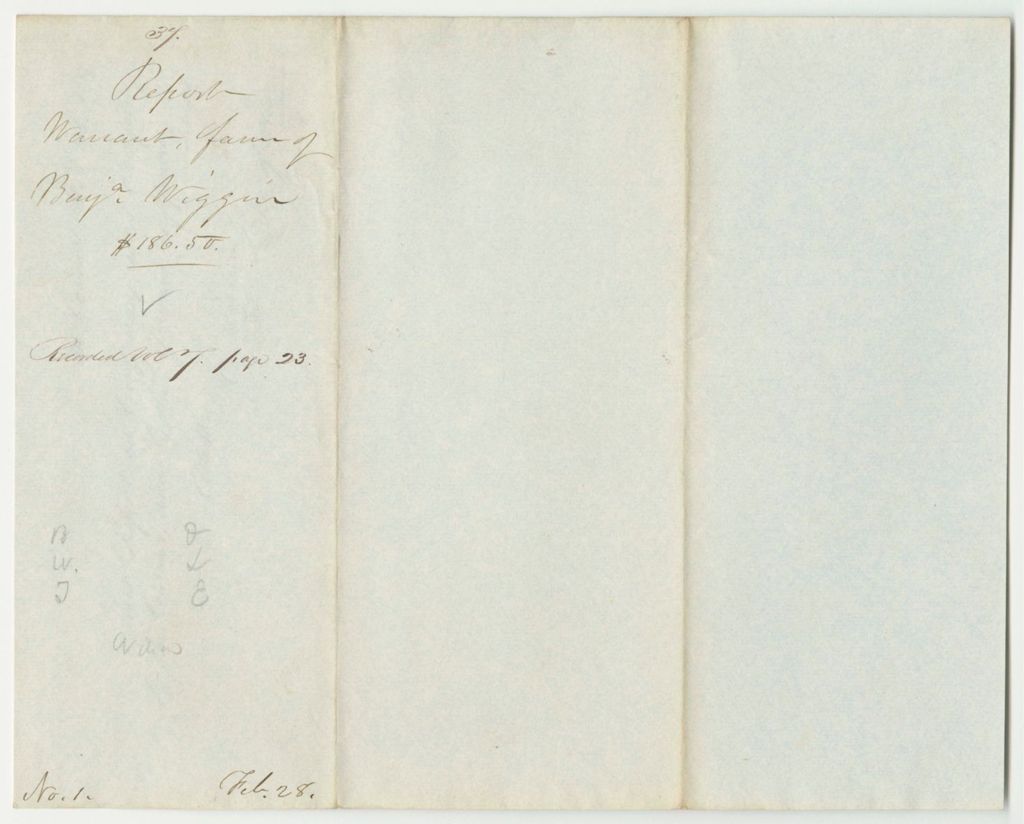 37.
Report
Warrant, favor of
Benjª Wiggin
$186.50.
Recorded Vol 7. page 23.
B D
W. L
J E
No. 1. Feb. 28.